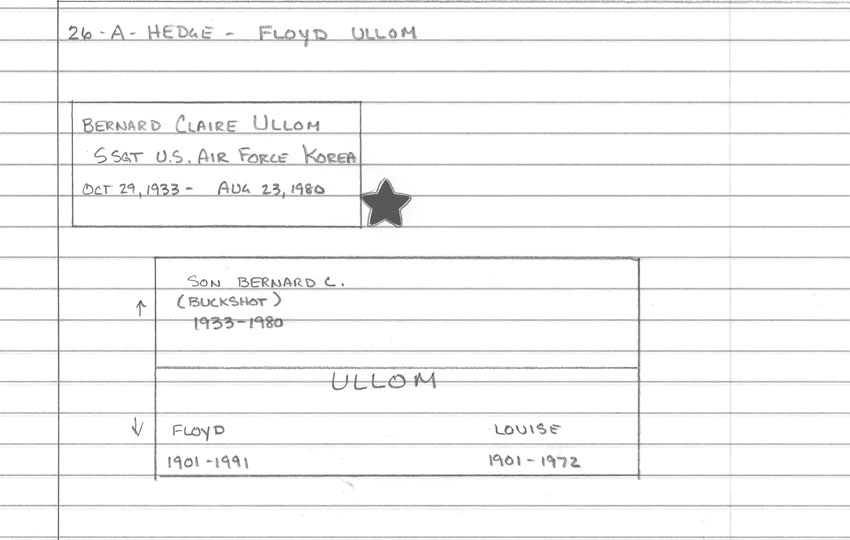 26-A- HEDGE - FLOYD ULLOM
BERNARD CLAIRE ULLOM
SSGT U.S. AIR FORCE KOREA
OCT 29, 1933 - AUG 23, 1980
SON BERNARD C.
(BUCKSHOT)
1933-1980
ULLOM
FLOYD LOUISE
1901-1991 1901-1972